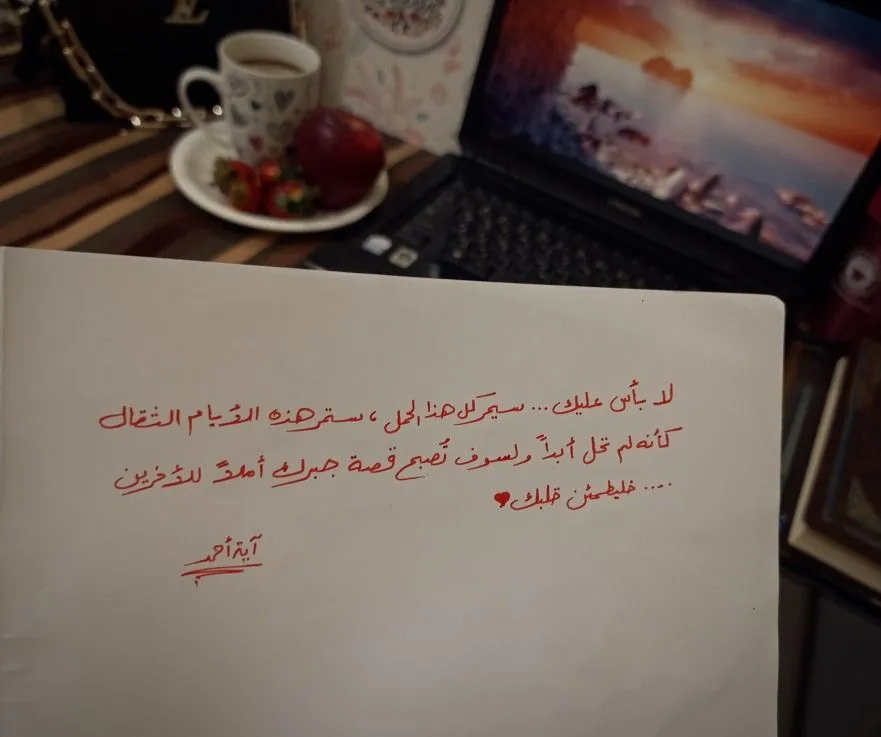 LV
لا بأس عليك ... سيمر كل هذا الحمل ، ستمر هذه الأيام الثقال
كأنه لم تحل أبداً ولسوف تُصبح قصة جبرك أملاً للأخرين
.... فليطمئن قلبك
آية أحمد